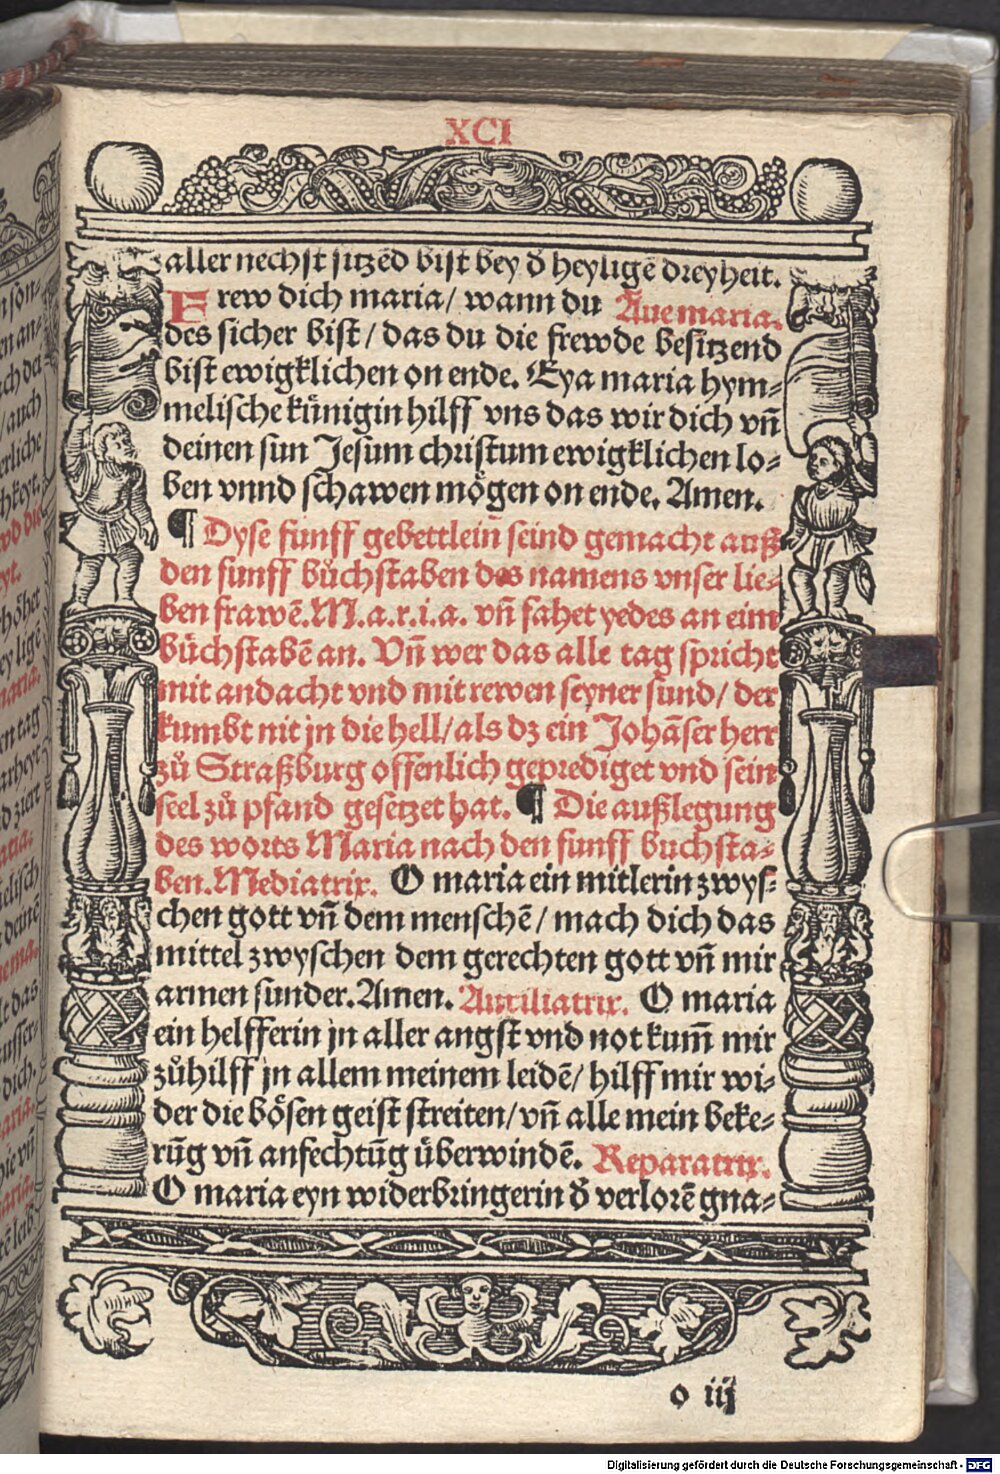 XCI
aller nechst sitzēd bist bey d̄ heyligē dreyheit.
Frew dich maria/ wann du Aue maria.
des sicher bist/ das du die frewde besitzend
bist ewigklichen on ende. Eya maria hym-
melische künigin hilff vns das wir dich vn̄
deinen sun Jesum christum ewigklichen lo-
ben vnnd schawen mögen on ende. Amen.
¶ Dyse fünff gebettlein seind gemacht auß
den funff bůchstaben des namens vnser lie-
ben frawē. M.a.r.i.a. vn̄ fahet yedes an eim
bůchstabē an. Vn̄ wer das alle tag spricht
mit andacht vnd mit rewen seyner sund/ der
kumbt nit jn die hell/ als dz ein Johāser herr
zů Straßburg offenlich geprediget vnd sein
seel zů pfand gesetzet hat. ¶ Die außlegung
des worts Maria nach den funff buchsta-
ben. Mediatrix. O maria ein mitlerin zwys-
chen gott vn̄ dem menschē/ mach dich das
mittel zwyschen dem gerechten gott vn̄ mir
armen sunder. Amen. Auxiliatrix. O maria
ein helfferin jn aller angst vnd not kum̄ mir
zůhilff jn allem meinem leidē/ hilff mir wi-
der die bösen geist streiten/ vn̄ alle mein beke-
rūg vn̄ anfechtūg überwindē. Reparatrix.
O maria eyn widerbringerin d̄ verlorē gna-
o iij
Digitalisierung gefördert durch die Deutsche Forschungsgemeinschaft - DFG